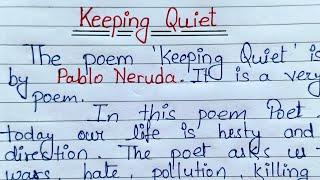 Keeping Quiet
The poem 'Keeping Quiet' is
by Pablo Neruda. It is a very
poem.
In this poem Poet
today our life is hesty and
direction. The poet asks us t
wars, hate, pollution, killing